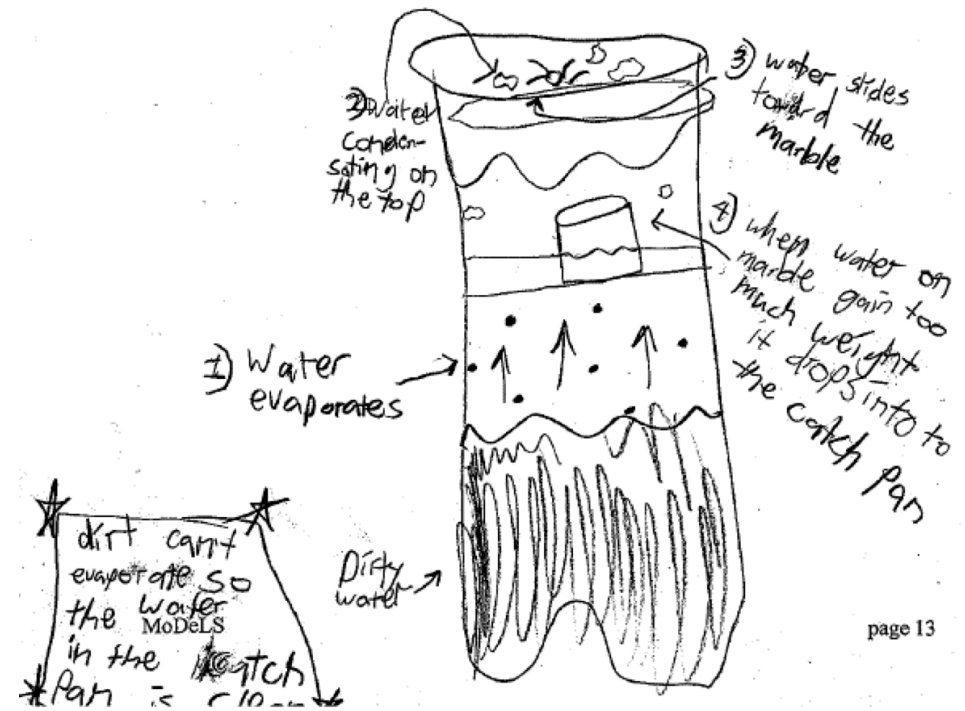 2) Water
conden-
sating on
the top
3) water slides
toward the
marble
4) when water on
marble gain too
much weight
it drops into to
the catch pan
1) Water
evaporates
Dirty
water
dirt can't
evaporate so
the water
in the catch
Pan is clean
MoDeLS
page 13